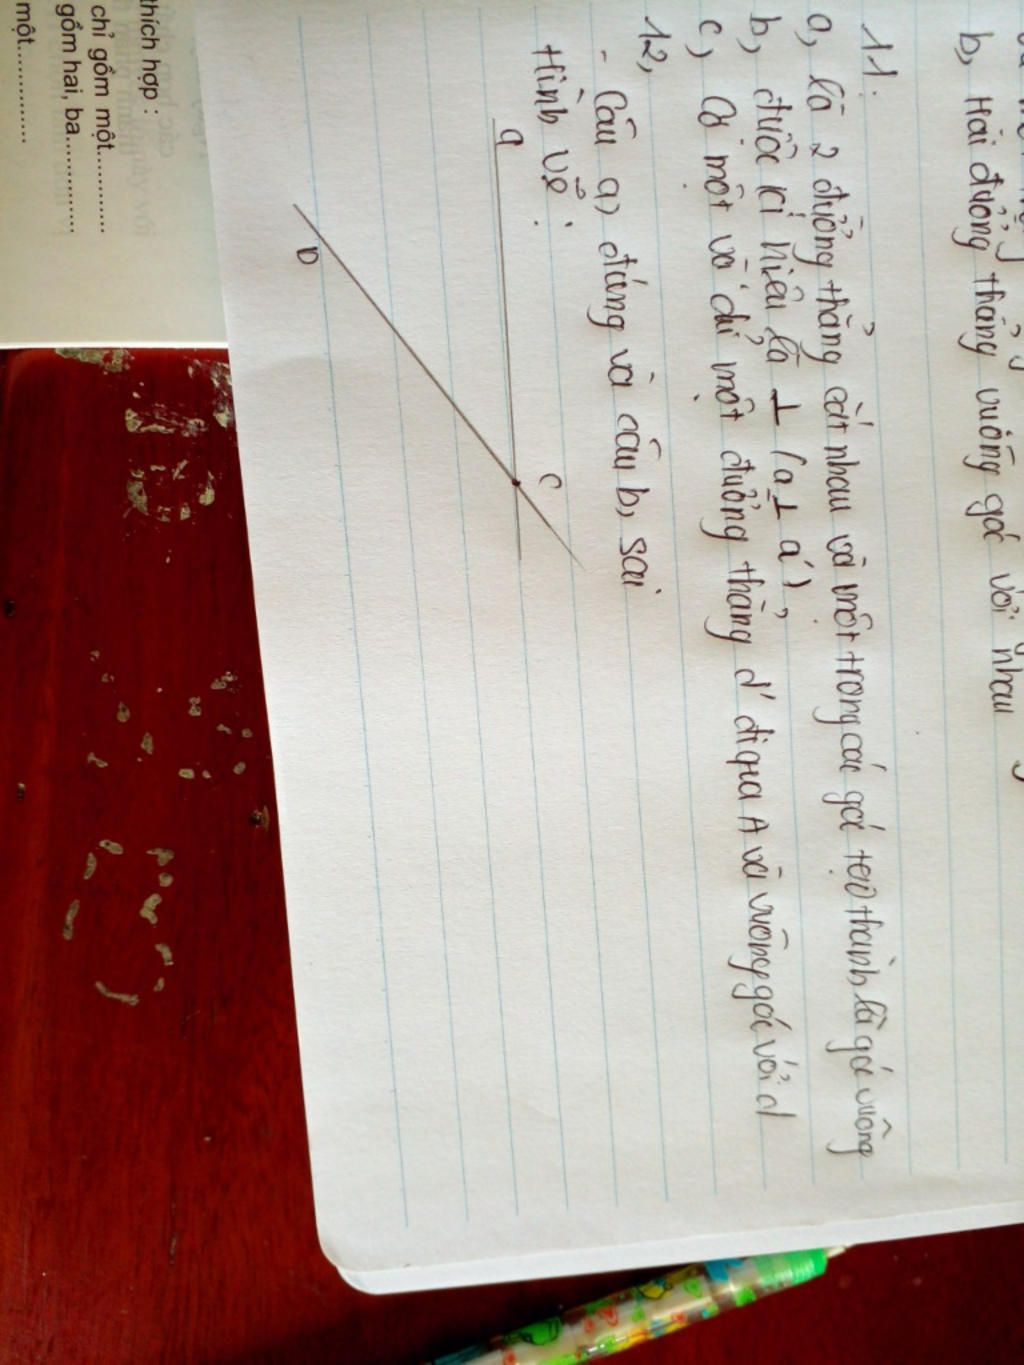 b, Hai đường thẳng vuông góc với nhau
11.
a, là 2 đường thẳng cắt nhau và một trong các góc tạo thành là góc vuông
b, được kí hiệu là ⊥ (a ⊥ a'),
c, Có một và chỉ một đường thẳng d' đi qua A và vuông góc với d
12,
- Câu a, đúng và câu b, sai
Hình vẽ:
a
C
D
thích hợp :
chỉ gồm một............
gồm hai, ba..............
một..............